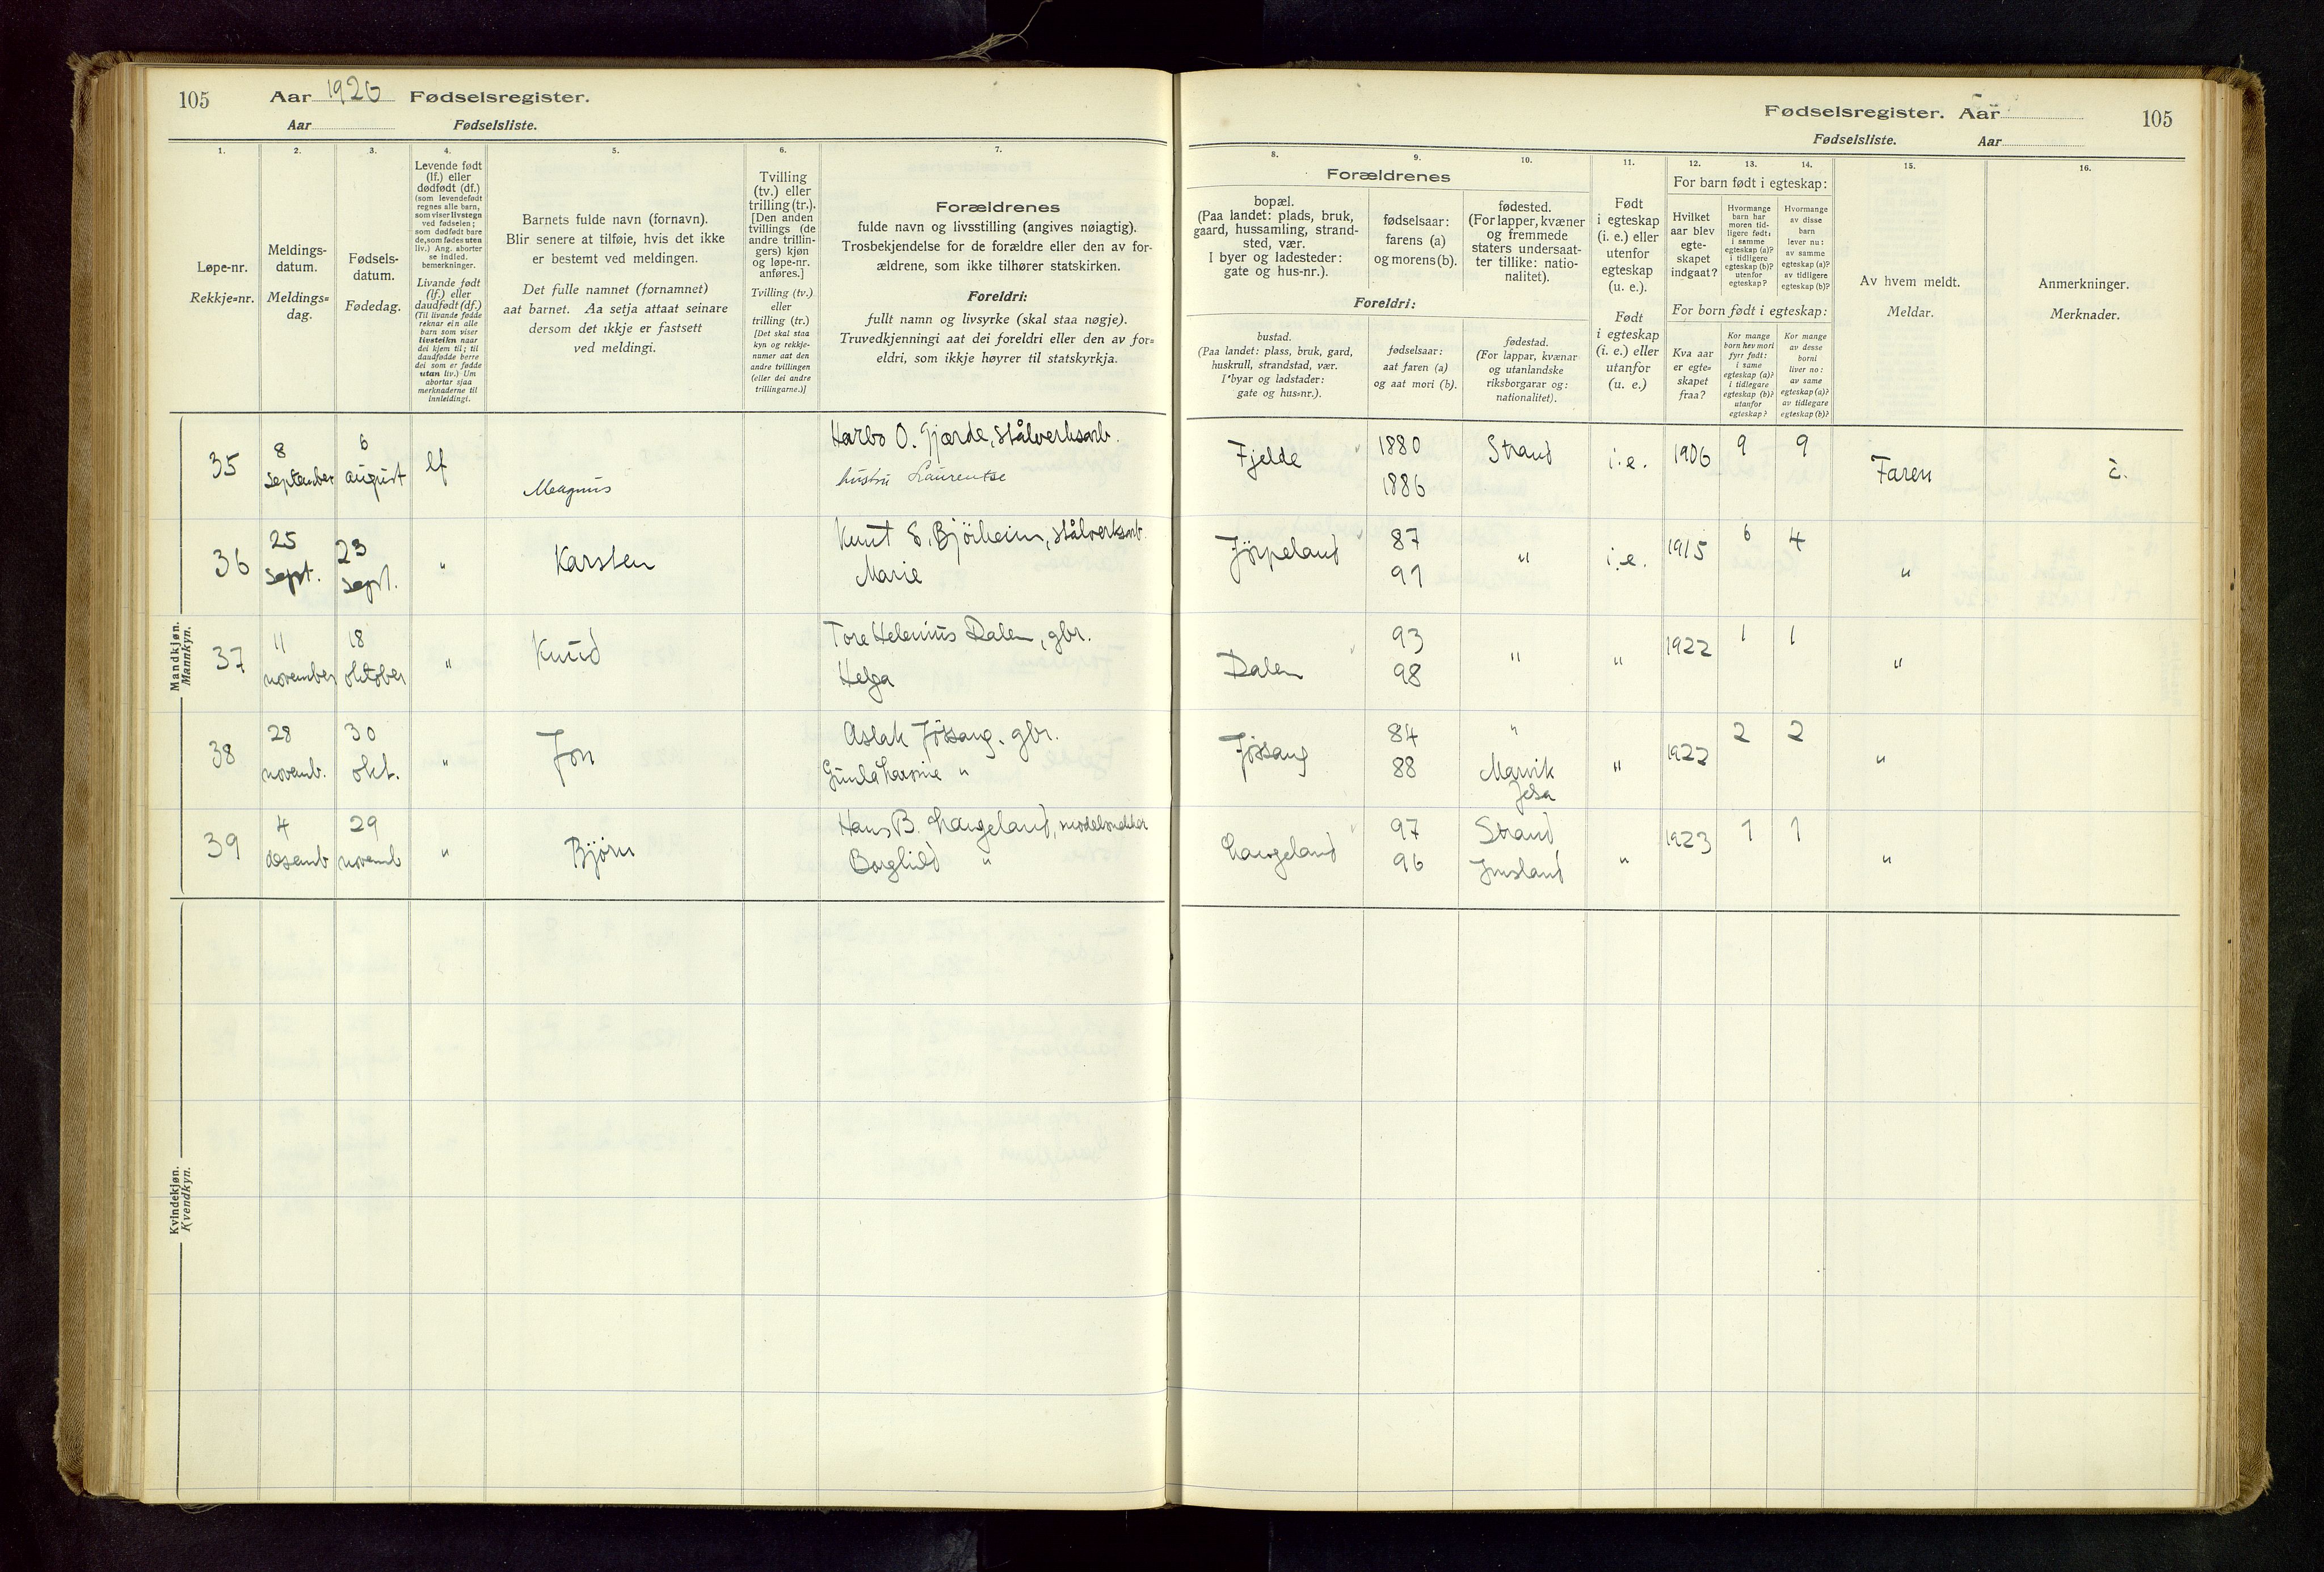 105 Aar 1926 Fødselsregister.
Aar Fødselsliste.
1. 2. 3. 4. 5. 6. 7.
Løpe-nr.
Rekkje=nr.
Meldings-
datum.
Meldings=
dag.
Fødsels-
datum.
Fødedag.
Levende født
(lf.) eller
dødfødt (df.)
(som levendefødt
regnes alle barn,
som viser livstegn
ved fødselen;
som dødfødt bare
de, som fødes uten
liv.) Ang. aborter
se indled.
bemerkninger.
Livande født
(lf.) eller
daudfødt (df.)
(Til livande fødde
reknar ein alle
barn som viser
livsteikn naar
dei kjem til; til
daudfødde berre
dei som er fødde
utan liv.) Um
abortar sjaa
merknaderne til
innleidingi.
Barnets fulde navn (fornavn).
Blir senere at tilføie, hvis det ikke
er bestemt ved meldingen.
Det fulle namnet (fornamnet)
aat barnet. Aa setja attaat seinare
dersom det ikkje er fastsett
ved meldingi.
Tvilling
(tv.) eller
trilling (tr.).
[Den anden
tvillings (de
andre trillin-
gers) kjøn
og løpe-nr.
anføres.]
Tvilling (tv.)
eller
trilling (tr.)
[Det skal staa
kyn og rekkje-
numer aat den
andre tvillingen
(eller dei andre
trillingarne.)]
Forældrenes
fulde navn og livsstilling (angives nøiagtig).
Trosbekjendelse for de forældre eller den av for-
ældrene, som ikke tilhører statskirken.
Foreldri:
fullt namn og livsyrke (skal staa nøgje).
Truvedkjenningi aat dei foreldri eller den av for=
eldri, som ikkje høyrer til statskyrkja.
Mandkjøn.
Mannkyn.
35 8 september 6 august lf Magnus Harbo O. Gjærde, stålverksarb.
hustru Laurentse
36 25 sept. 23 sept. " Karsten Knut S. Bjørheim, stålverksarb.
Marie
37 11 november 18 oktober " Knud Tore Helenius Dalen, gbr.
Helga
38 28 novemb. 30 okt. " Jon Aslak Jøssang, gbr.
Gunla Larsine "
39 4 desemb 29 novemb " Bjørn Hans B. Langeland, modelsnekker
Borghild "
Kvindekjøn.
Kvendkyn.
Fødselsregister. Aar 105
Fødselsliste. Aar
8. 9. 10. 11. 12. 13. 14. 15. 16.
Forældrenes
bopæl.
(Paa landet: plads, bruk,
gaard, hussamling, strand-
sted, vær.
I byer og ladesteder:
gate og hus-nr.).
fødselsaar:
farens (a)
og morens (b).
fødested.
(For lapper, kvæner
og fremmede
staters undersaat-
ter tillike: natio-
nalitet).
Foreldri:
bustad.
(Paa landet: plass, bruk, gard,
huskrull, strandstad, vær.
I byar og ladstader:
gate og hus=nr.).
fødselsaar:
aat faren (a)
og aat mori (b).
fødestad.
(For lappar, kvænar
og utanlandske
riksborgarar og:
nationalitet).
Født
i egteskap
(i. e.) eller
utenfor
egteskap
(u. e.).
Født
i egteskap
(i. e.) eller
utanfor
(u. e.)
For barn født i egteskap:
Hvilket
aar blev
egte-
skapet
indgaat?
Hvormange
barn har
moren tid-
ligere født:
i samme
egteskap (a)?
i tidligere
egteskap (b)?
utenfor
egteskap?
Hvormange
av disse
barn
lever nu:
av samme
egteskap (a)?
av tidligere
egteskap (b)?
For born født i egteskap:
Kva aar
er egte=
skapet
fraa?
Kor mange
born hev mori
fyrr født:
i same
egteskap (a)?
i tidlegare
egteskap (b)?
utanfor
egteskap?
Kor mange
av desse
borni
liver no:
av same
egteskap (a)?
av tidlegare
egteskap (b)?
Av hvem meldt.
Meldar.
Anmerkninger.
Merknader.
Fjelde 1880 1886 Strand i.e. 1906 9 9 Faren
Jørpeland 87 91 " i.e. 1915 6 4 "
Dalen 93 98 " " 1922 1 1 "
Jøssang 84 88 " Marvik Jelsa " 1922 2 2 "
Langeland 97 96 Strand Imsland " 1923 1 1 "